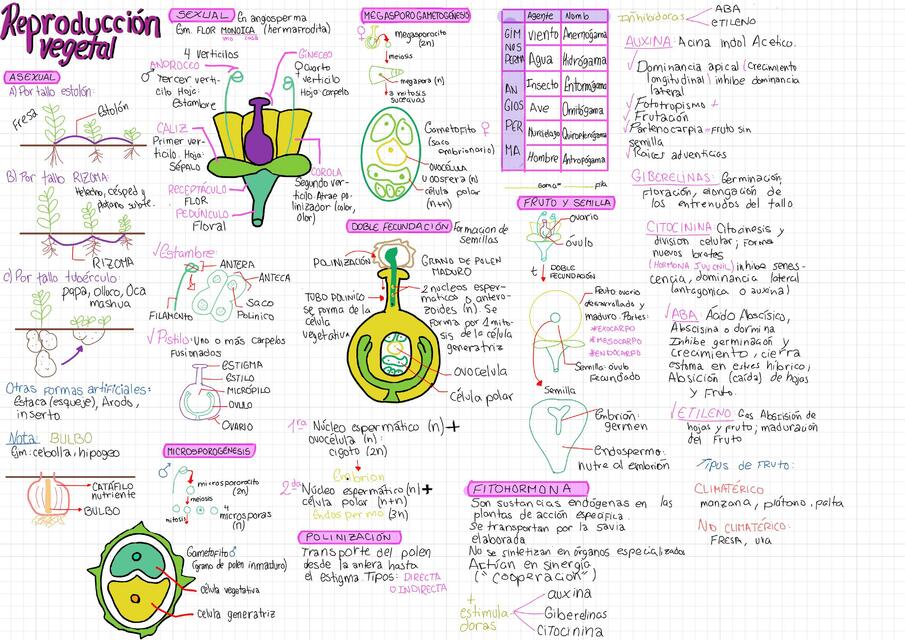 Reproducción
vegetal
ASEXUAL
A) Por tallo estolón:
Fresa
estolón
B) Por tallo RIZOMA:
helecho, césped y
plátano subte.
RIZOMA
C) Por tallo tubérculo:
papa, olluco, Oca
mashua
Otras formas artificiales:
Estaca (esqueje), Acodo,
inserto.
Nota: BULBO
Ejm: cebolla: hipogeo
CATÁFILO
nutriente
BULBO
SEXUAL
En angiosperma
Ejm. FLOR MONOICA (hermafrodita)
4 verticilos
ANDROCEO
♂ Tercer verti-
cilo. Hoja:
Estambre
GINECEO
♀ Cuarto
verticilo
Hoja: carpelo
CALIZ
Primer ver-
ticilo. Hoja:
Sépalo
COROLA
Segundo ver-
ticilo. Atrae po-
linizador (color,
olor)
RECEPTÁCULO
FLOR
PEDÚNCULO
Floral
✓Estambre:
ANTERA
ANTECA
Saco
Polínico
FILAMENTO
✓Pistilo: Uno o más carpelos
fusionados
ESTIGMA
ESTILO
MICRÓPILO
OVULO
OVARIO
MICROSPOROGÉNESIS
♂
microsporocito
(2n)
meiosis
mitosis
4
microsporas
(n)
Gametofito ♂
(grano de polen inmaduro)
célula vegetativa
célula generatriz
MEGASPOROGAMETOGÉNESIS
♀
megasporocito
(2n)
meiosis
megaspora (n)
3 mitosis
sucesivas
Gametofito ♀
(saco
embrionario)
ovocélula
u oosfera (n)
célula polar
(n+n)
DOBLE FECUNDACIÓN
Formacion de
semillas
POLINIZACIÓN
GRANO DE POLEN
MADURO
TUBO POLINICO
se forma de la
célula
vegetativa
2 núcleos esper-
máticos o antero-
zoides (n). Se
forma por 1 mito-
sis de la célula
generatriz
OVOCELULA
Célula polar
1ra Núcleo espermático (n) +
ovocélula (n):
cigoto (2n)
Embrion
2da Núcleo espermático (n) +
célula polar (n+n)
Endospermo (3n)
POLINIZACIÓN
Transporte del polen
desde la antera hasta
el estigma. Tipos: DIRECTA
O INDIRECTA
Agente Nomb
GIMNOSPERMA
viento Anemógama
Agua Hidrógama
ANGIOSPERMA
Insecto Entomógama
Ave Ornitógama
Murciélago Quiropterógama
Hombre Antropógama
FRUTO Y SEMILLA
ovario
óvulo
DOBLE
FECUNDACIÓN
Fruto: ovario
desarrollado y
maduro. Partes:
*EXOCARPO
*MESOCARPO
*ENDOCARPO
Semilla: óvulo
fecundado
Semilla
Embrión:
germen
Endospermo:
nutre al embrión
FITOHORMONA
Son sustancias endógenas en las
plantas de acción específica.
Se transportan por la savia
elaborada
No se sintetizan en órganos especializados
Actúan en sinergia
("cooperación")
+
estimula
doras
auxina
Giberelinas
Citocinina
Inhibidoras
ABA
ETILENO
AUXINA: Acina Indol Acetico.
✓Dominancia apical (Crecimiento
longitudinal) inhibe dominancia
lateral
✓Fototropismo +
✓Frutación
✓Partenocarpia = fruto sin
semilla
✓Raíces adventicias
GIBERELINAS: Germinación,
Floración, elongación de
los entrenudos del tallo
CITOCININA Citocinesis y
división celular; forma
nuevos brotes
(HORMONA JUVENIL) inhibe senes-
cencia, dominancia lateral
(antagónica a auxina)
✓ABA: Acido Abscísico,
Abscisina o dormina
Inhibe germinación y
crecimiento, cierra
estoma en estrés hídrico;
Abscisión (caída) de hojas
y fruto.
✓ETILENO: Gas Abscisión de
hojas y fruto; maduración
del Fruto
Tipos de Fruto:
CLIMATÉRICO
manzana, plátano, palta
NO CLIMATÉRICO:
FRESA, uva